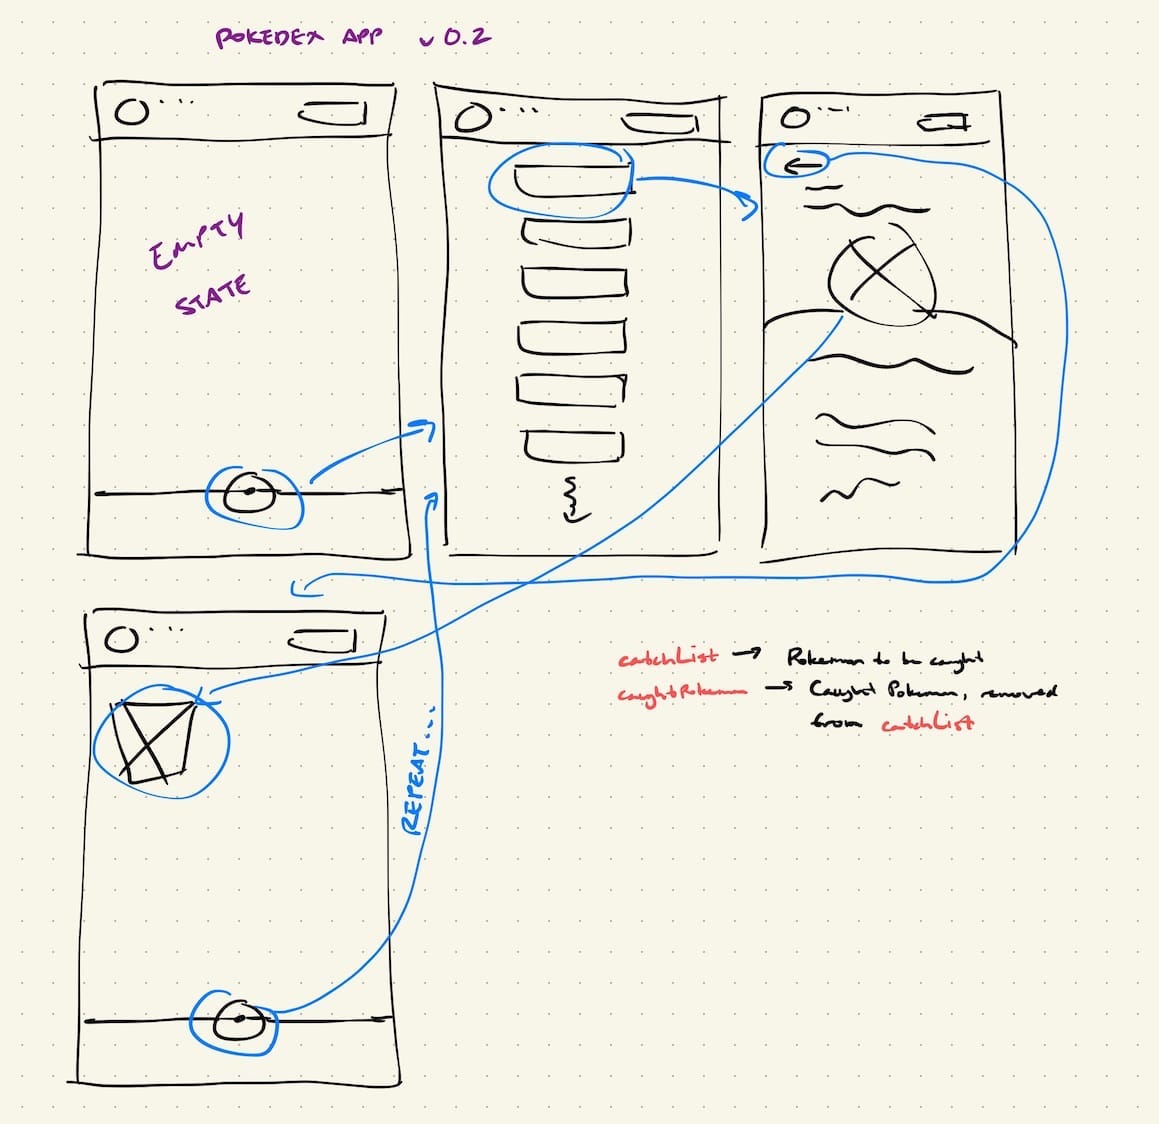 POKEDEX APP v 0.2
EMPTY
STATE
catchList → Pokemon to be caught
caughtPokemon → Caught Pokemon, removed
from catchList
REPEAT...